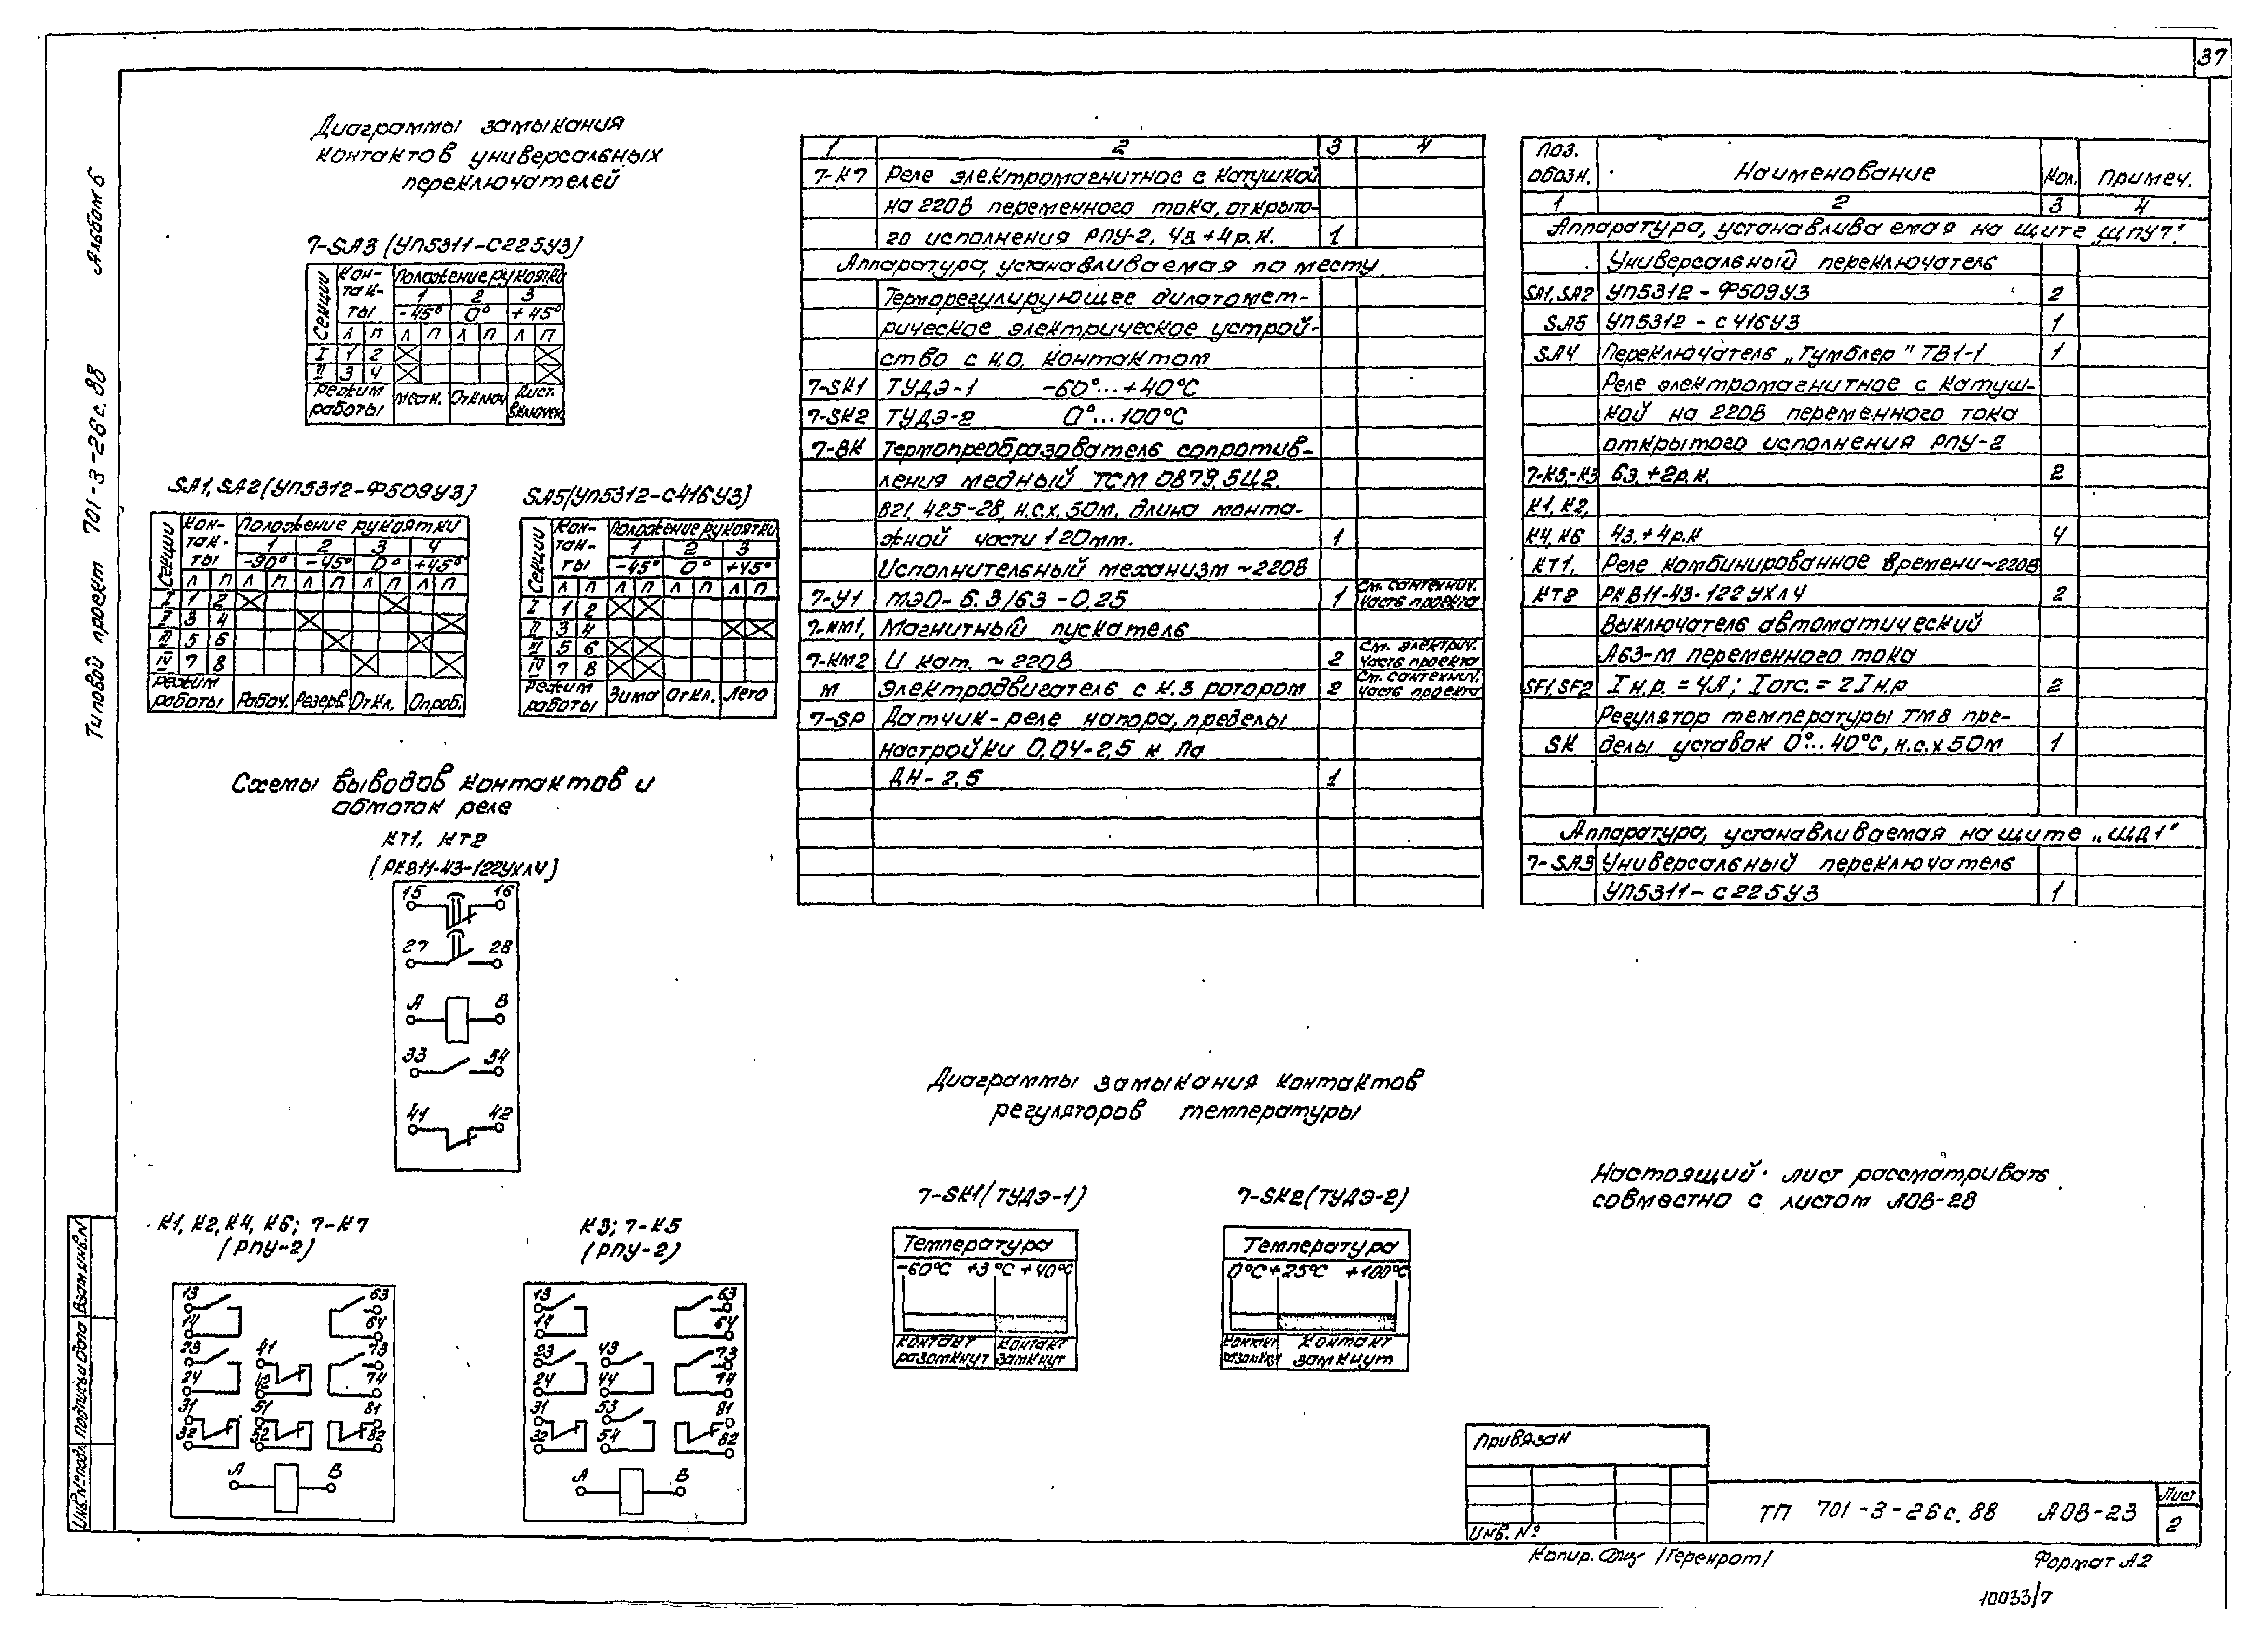 37
Альбом 6
Типовой проект 701-3-26с.88
Диаграммы замыкания
контактов универсальных
переключателей
7-SA3 (УП5311-С225У3)
Секции
Кон-
так-
ты
Положение рукоятки
1 2 3
-45° 0° +45°
Л П Л П Л П Л П
I 1 2
II 3 4
Режим
работы
Местн. Отключ. Дист.
включен.
SA1, SA2 (УП5312-Ф509У3)
Секции
Кон-
так-
ты
Положение рукоятки
1 2 3 4
-90° -45° 0° +45°
Л П Л П Л П Л П Л П
I 1 2
II 3 4
III 5 6
IV 7 8
Режим
работы
Рабоч. Резерв. Откл. Опроб.
SA5 (УП5312-С416У3)
Секции
Кон-
так-
ты
Положение рукоятки
1 2 3
-45° 0° +45°
Л П Л П Л П Л П
I 1 2
II 3 4
III 5 6
IV 7 8
Режим
работы
Зима Откл. Лето
Схемы выводов контактов и
обмоток реле
КТ1, КТ2
(РКВ11-43-122УХЛ4)
15 16
27 28
А В
33 34
41 42
К1, К2, К4, К6; 7-К7
(РПУ-2)
13 63
14 64
23 41 73
24 42 74
31 51 81
32 52 82
А В
К3; 7-К5
(РПУ-2)
13 63
14 64
23 43 73
24 44 74
31 53 81
32 54 82
А В
1 2 3 4
7-К7 Реле электромагнитное с катушкой
на 220В переменного тока, открыто-
го исполнения РПУ-2, 4з.+4р.к. 1
Аппаратура, устанавливаемая по месту.
Терморегулирующее дилатомет-
рическое электрическое устрой-
ство с н.о. контактом
7-SK1 ТУДЭ-1 -60°...+40°С
7-SK2 ТУДЭ-2 0°...100°С
7-ВК Термопреобразователь сопротив-
ления медный ТСМ 0879.5Ц2.
821.425-28, н.с.х. 50м, длина монта-
жной части 120мм. 1
Исполнительный механизм ~220В
7-У1 МЭО-6.3/63-0,25 1 См. сантехнич. часть проекта
7-КМ1, Магнитный пускатель
7-КМ2 U кат. ~220В 2 См. электрич. часть проекта
М Электродвигатель с к.з ротором 2 См. сантехнич. часть проекта
7-SP Датчик-реле напора, пределы
настройки 0,04-2,5 к Па
ДН-2,5 1
Поз.
обозн. Наименование Кол. Примеч.
1 2 3 4
Аппаратура, устанавливаемая на щите „ЩПУ7".
Универсальный переключатель
SA1, SA2 УП5312-Ф509У3 2
SA5 УП5312-С416У3 1
SA4 Переключатель „Тумблер" ТВ1-1 1
Реле электромагнитное с катуш-
кой на 220В переменного тока
открытого исполнения РПУ-2
7-К5,-К3 6з.+2р.к. 2
К1, К2,
К4, К6 4з.+4р.к 4
КТ1, Реле комбинированное времени ~220В
КТ2 РКВ11-43-122УХЛ4 2
Выключатель автоматический
А63-М переменного тока
SF1, SF2 Iн.р. = 4А; Iотс. = 2Iн.р 2
Регулятор температуры ТМ8 пре-
SK делы уставок 0°...40°С, н.с.х 50м 1
Аппаратура, устанавливаемая на щите „ЩД1"
7-SA3 Универсальный переключатель
УП5311-С225У3 1
Диаграммы замыкания контактов
регуляторов температуры
7-SK1 (ТУДЭ-1)
Температура
-60°С +3°С +40°С
Контакт
разомкнут
Контакт
замкнут
7-SK2 (ТУДЭ-2)
Температура
0°С +25°С +100°С
Контакт
разомкнут
Контакт
замкнут
Настоящий лист рассматривать
совместно с листом АОВ-28
Привязан
Инв. №
ТП 701-3-26с.88 АОВ-23
Лист
2
Копир. /Геренрот/
Формат А2
10033/7
Взам. инв. N
Подпись и дата
Инв. № подл.